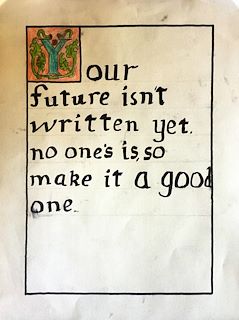 Your
future isn't
written yet.
no one's is, so
make it a good
one.